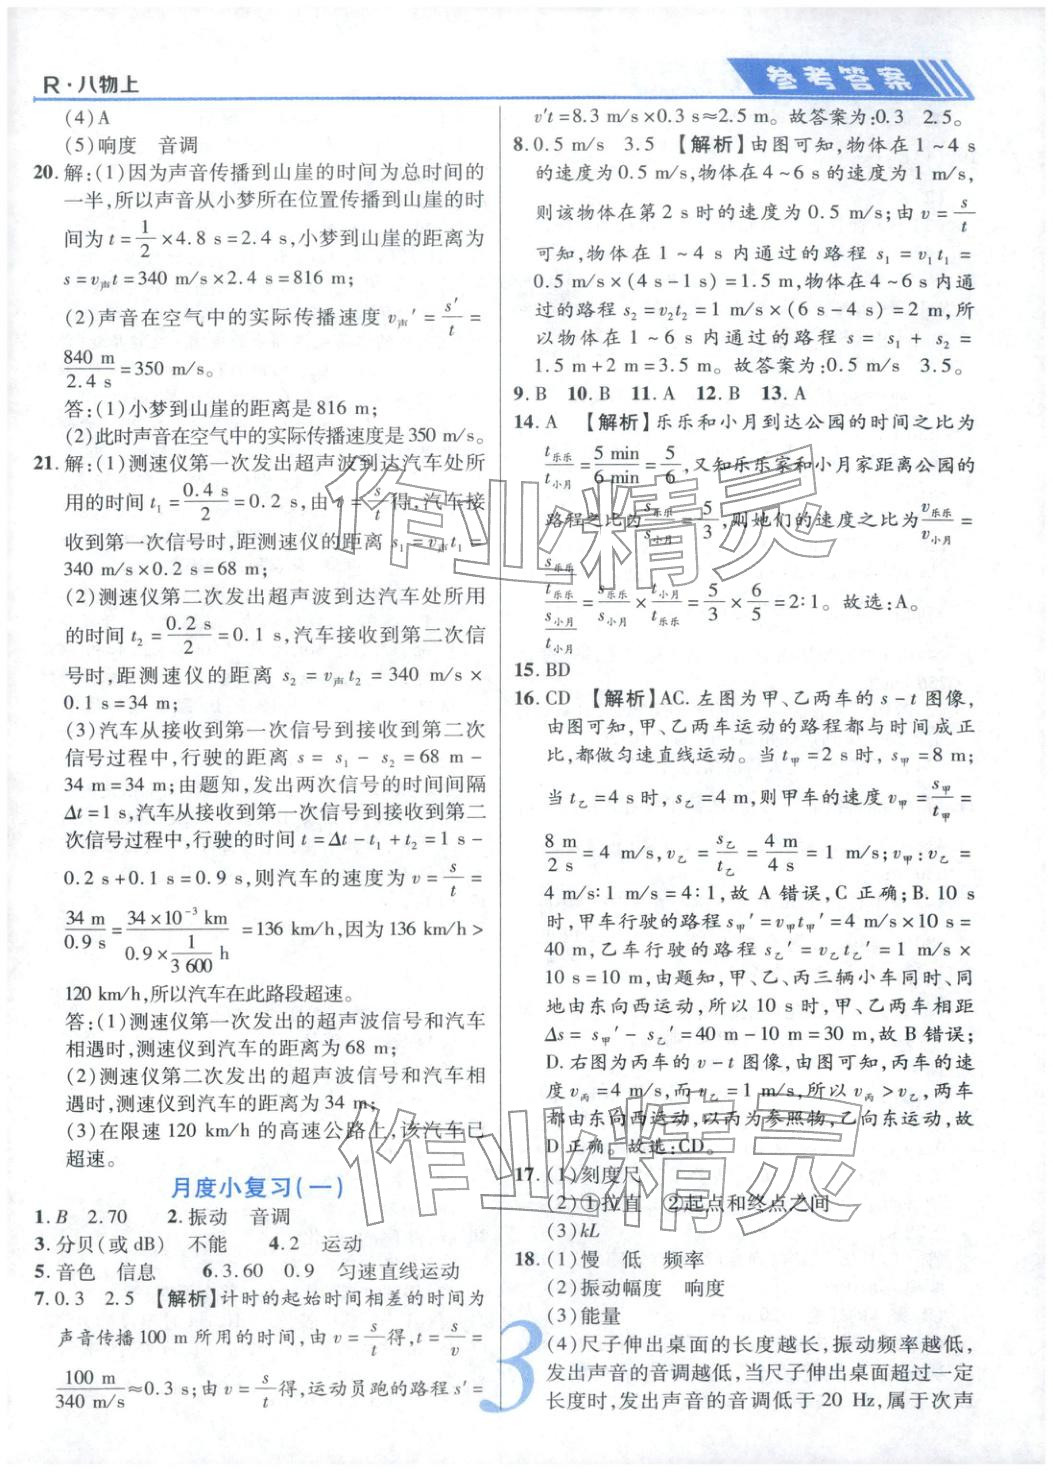 R·八物上
参考答案
(4)A
(5)响度 音调
20.解:(1)因为声音传播到山崖的时间为总时间的
一半,所以声音从小梦所在位置传播到山崖的时
间为 t=1/2×4.8 s=2.4 s,小梦到山崖的距离为
s=v声t=340 m/s×2.4 s=816 m;
(2)声音在空气中的实际传播速度 v声′=s′/t=
840 m/2.4 s=350 m/s。
答:(1)小梦到山崖的距离是 816 m;
(2)此时声音在空气中的实际传播速度是 350 m/s。
21.解:(1)测速仪第一次发出超声波到达汽车处所
用的时间 t₁=0.4 s/2=0.2 s,由 v=s/t得,汽车接
收到第一次信号时,距测速仪的距离 s₁=v声t₁=
340 m/s×0.2 s=68 m;
(2)测速仪第二次发出超声波到达汽车处所用
的时间 t₂=0.2 s/2=0.1 s,汽车接收到第二次信
号时,距测速仪的距离 s₂=v声t₂=340 m/s×
0.1 s=34 m;
(3)汽车从接收到第一次信号到接收到第二次
信号过程中,行驶的距离 s=s₁-s₂=68 m-
34 m=34 m;由题知,发出两次信号的时间间隔
Δt=1 s,汽车从接收到第一次信号到接收到第二
次信号过程中,行驶的时间 t=Δt-t₁+t₂=1 s-
0.2 s+0.1 s=0.9 s,则汽车的速度为 v=s/t=
34 m/0.9 s=34×10⁻³ km/0.9×1/3 600 h=136 km/h,因为 136 km/h>
120 km/h,所以汽车在此路段超速。
答:(1)测速仪第一次发出的超声波信号和汽车
相遇时,测速仪到汽车的距离为 68 m;
(2)测速仪第二次发出的超声波信号和汽车相
遇时,测速仪到汽车的距离为 34 m;
(3)在限速 120 km/h 的高速公路上,该汽车已
超速。
月度小复习(一)
1.B 2.70 2.振动 音调
3.分贝(或 dB) 不能 4.2 运动
5.音色 信息 6.3.60 0.9 匀速直线运动
7.0.3 2.5 【解析】计时的起始时间相差的时间为
声音传播 100 m 所用的时间,由 v=s/t得,t=s/v=
100 m/340 m/s≈0.3 s;由 v=s/t得,运动员跑的路程 s′=
v′t=8.3 m/s×0.3 s≈2.5 m。故答案为:0.3 2.5。
8.0.5 m/s 3.5 【解析】由图可知,物体在 1~4 s
的速度为 0.5 m/s,物体在 4~6 s 的速度为 1 m/s,
则该物体在第 2 s 时的速度为 0.5 m/s;由 v=s/t
可知,物体在 1~4 s 内通过的路程 s₁=v₁t₁=
0.5 m/s×(4 s-1 s)=1.5 m,物体在 4~6 s 内通
过的路程 s₂=v₂t₂=1 m/s×(6 s-4 s)=2 m,所
以物体在 1~6 s 内通过的路程 s=s₁+s₂=
1.5 m+2 m=3.5 m。故答案为:0.5 m/s 3.5。
9.B 10.B 11.A 12.B 13.A
14.A 【解析】乐乐和小月到达公园的时间之比为
t乐乐/t小月=5 min/6 min=5/6,又知乐乐家和小月家距离公园的
路程之比为s乐乐/s小月=5/3,则她们的速度之比为v乐乐/v小月=
(s乐乐/t乐乐)/(s小月/t小月)=s乐乐/s小月×t小月/t乐乐=5/3×6/5=2∶1。故选:A。
15.BD
16.CD 【解析】AC.左图为甲、乙两车的 s-t 图像,
由图可知,甲、乙两车运动的路程都与时间成正
比,都做匀速直线运动。当 t甲=2 s 时,s甲=8 m;
当 t乙=4 s 时,s乙=4 m,则甲车的速度 v甲=s甲/t甲=
8 m/2 s=4 m/s,v乙=s乙/t乙=4 m/4 s=1 m/s;v甲∶v乙=
4 m/s∶1 m/s=4∶1,故 A 错误,C 正确;B.10 s
时,甲车行驶的路程 s甲′=v甲t甲′=4 m/s×10 s=
40 m,乙车行驶的路程 s乙′=v乙t乙′=1 m/s×
10 s=10 m,由题知,甲、乙、丙三辆小车同时、同
地由东向西运动,所以 10 s 时,甲、乙两车相距
Δs=s甲′-s乙′=40 m-10 m=30 m,故 B 错误;
D.右图为丙车的 v-t 图像,由图可知,丙车的速
度 v丙=4 m/s,而 v乙=1 m/s,所以 v丙>v乙,两车
都由东向西运动,以丙为参照物,乙向东运动,故
D 正确。故选:CD。
17.(1)刻度尺
(2)①拉直 ②起点和终点之间
(3)kL
18.(1)慢 低 频率
(2)振动幅度 响度
(3)能量
(4)尺子伸出桌面的长度越长,振动频率越低,
发出声音的音调越低,当尺子伸出桌面超过一定
长度时,发出声音的音调低于 20 Hz,属于次声
3
作业精灵
作业精灵